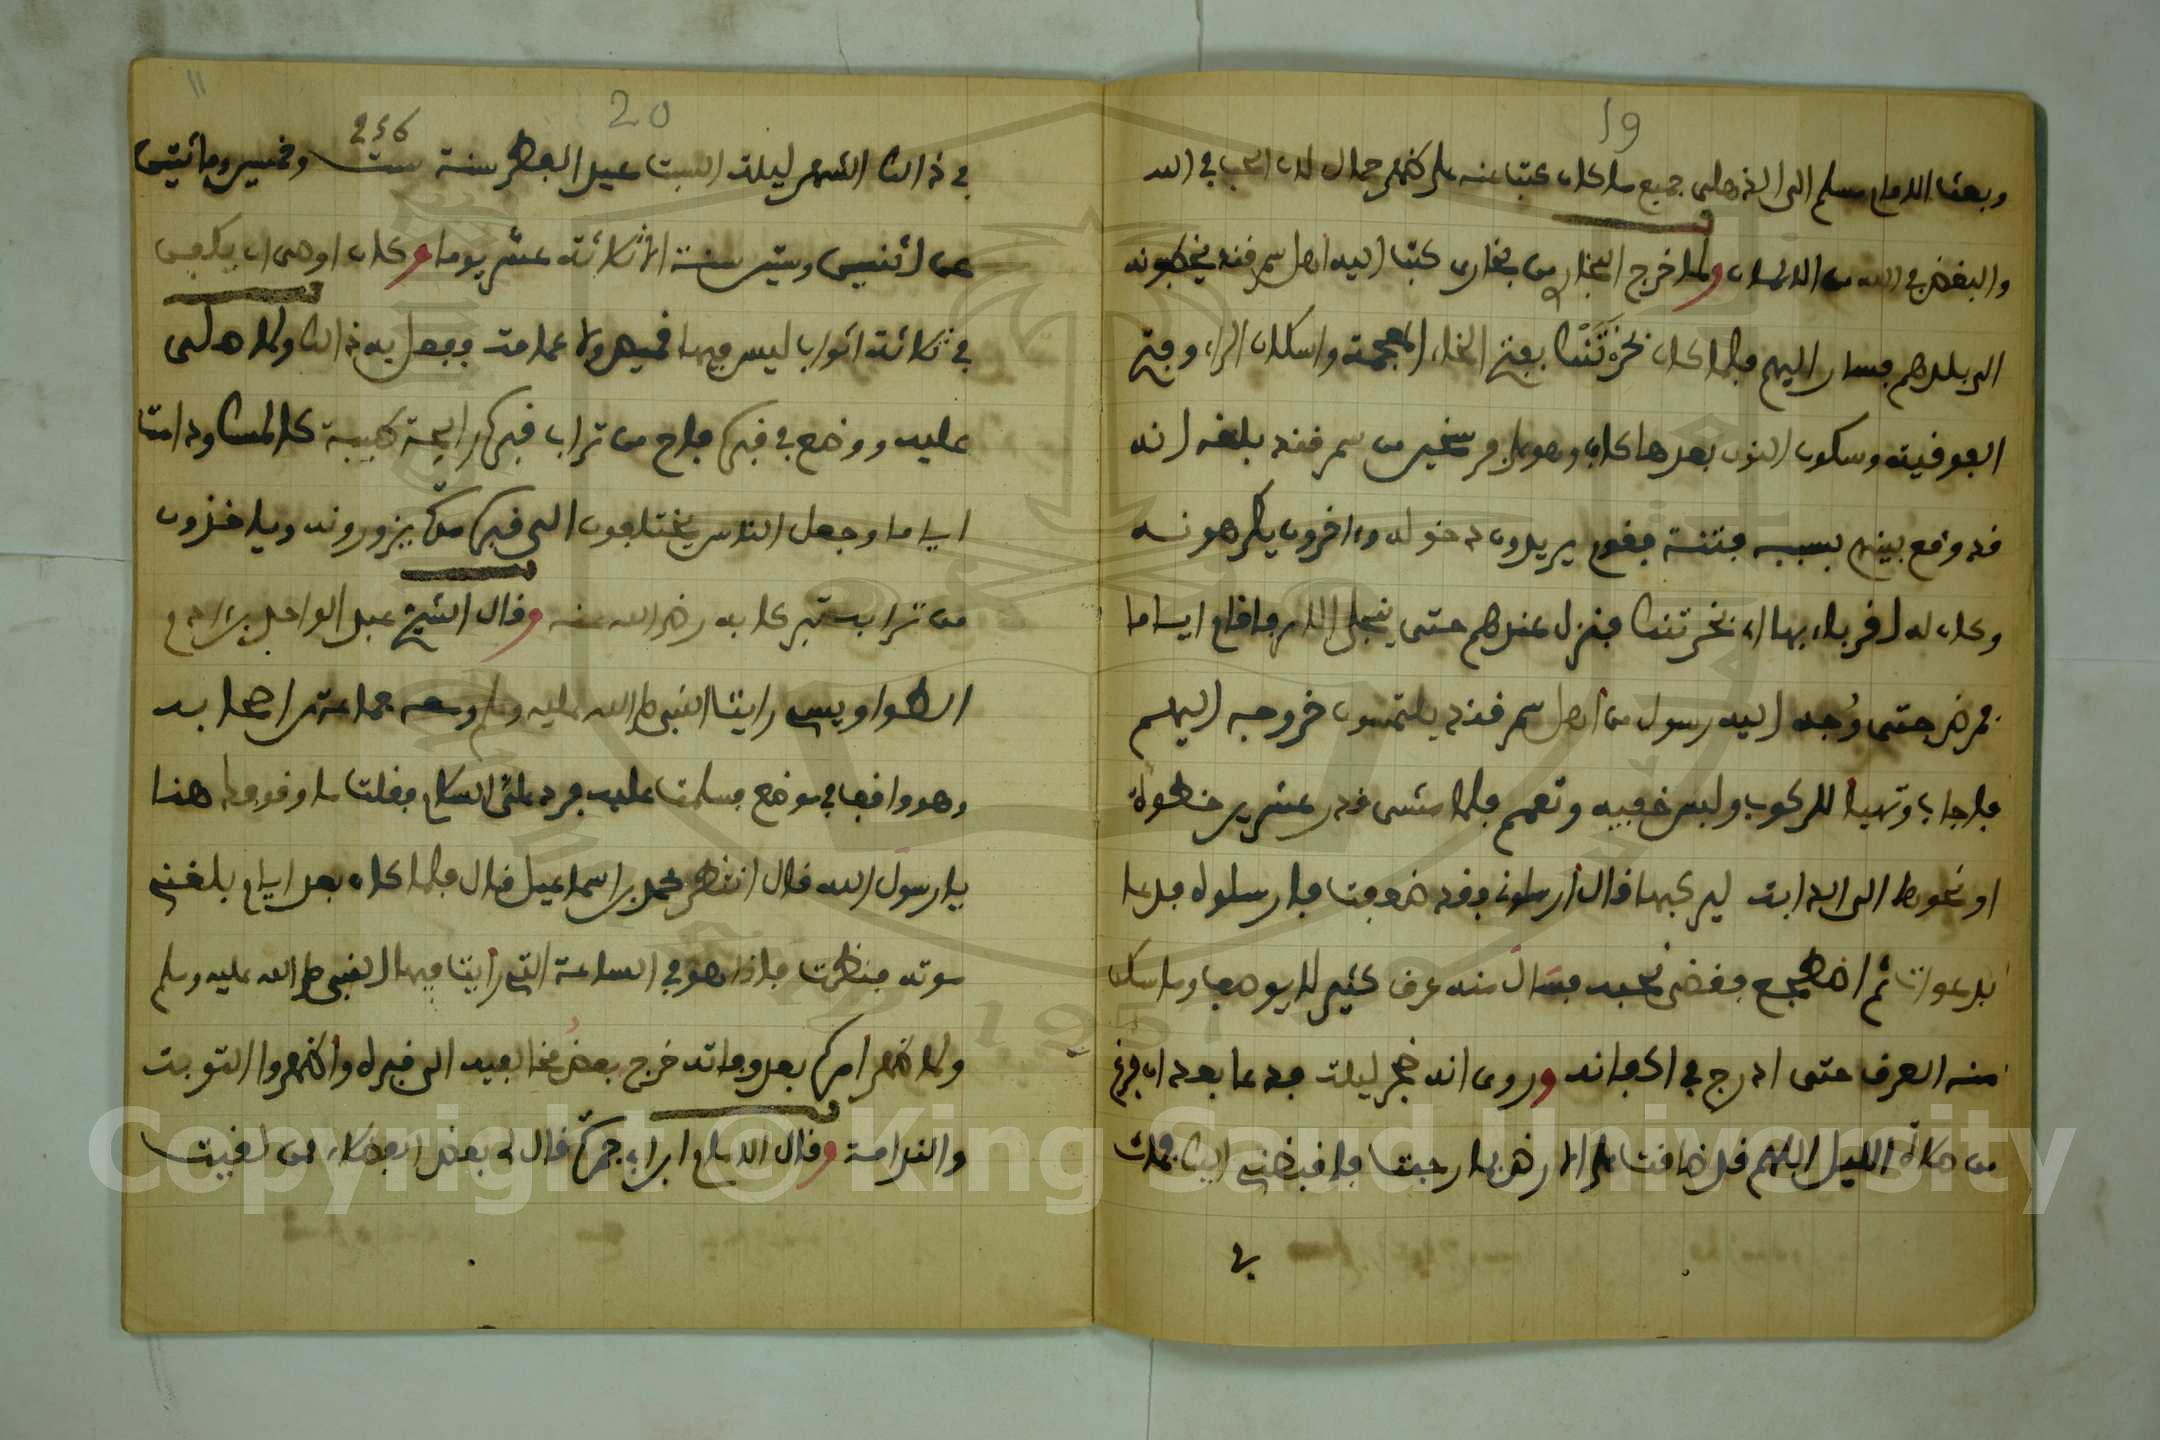 19
وبعث الامام مسلم الى الذهلى جميع ما كان كتب عنه على ظهر حمال لان الحب فى الله
والبغض فى الله من الايمان ولما خرج البخارى من بخارى كتب اليه اهل سمرقند يخطبونه
الى بلدهم فسار اليهم فلما كان بخَرْتَنْك بفتح الخاء المعجمة واسكان الراء وفتح
الفوقية وسكون النون بعدها كاف وهو على فرسخين من سمرقند بلغه انه
قد وقع بينهم بسببه فتنة فقوم يريدون دخوله وءاخرون يكرهونه
وكان له اقرباء بها اى بخرتنك فنزل عندهم حتى ينجلى الامر فاقام اياما
فمرض حتى وُجه اليه رسول من اهل سمرقند يلتمسون خروجه اليهم
فاجاب وتهيأ للركوب ولبس خفيه وتعمم فلما مشى قدر عشرين خطوة
او نحوها الى الدابة ليركبها قال أرسلونى فقد ضعفت فارسلوه فدعا
بدعوات ثم اضطجع فقضى نحبه فسَالَ منه عرف كثير لا يوصف وما سكن
منه العرق حتى ادرج فى اكفانه وروى انه ضجر ليلة فدعا بعد ان فرغ
من صلاة الليل اللهم قد ضاقت على الارض بما رحبت فاقبضنى اليك فمات
فى
20
11
256
فى ذالك الشهر ليلة السبت عيد الفطر سنة ست وخمسين ومائتين
عن اثنين وستين سنة الا ثلاثة عشر يوما وكان اوصى ان يكفن
فى ثلاثة اثواب ليس فيها قميص ولا عمامة ففعل به ذالك ولما صلى
عليه ووضع فى قبره فاح من تراب قبره رايحة طيبة كالمسك ودامت
اياما وجعل الناس يختلفون الى قبره مدة يزورونه وياخذون
من ترابه تبركا به رضى الله عنه وقال الشيخ عبد الواحد بن ءادم
الطواويسى رايت النبى صلى الله عليه وسلم ومعه جماعة من اصحابه
وهو واقف فى موضع فسلمت عليه فرد على السلام فقلت ما وقوفك هنا
يا رسول الله قال انتظر محمد بن اسماعيل قال فلما كان بعد ايام بلغنى
موته فنظرت فاذا هو فى الساعة التى رأيت فيها النبى صلى الله عليه وسلم
ولما ظهر امره بعد وفاته خرج بعضُ مخالفيه الى قبره وأظهروا التوبة
والندامة وقال الامام ابن ابى جمرة قال لى بعض الفضلاء ممن لقيت
Copyright © King Saud University
1957